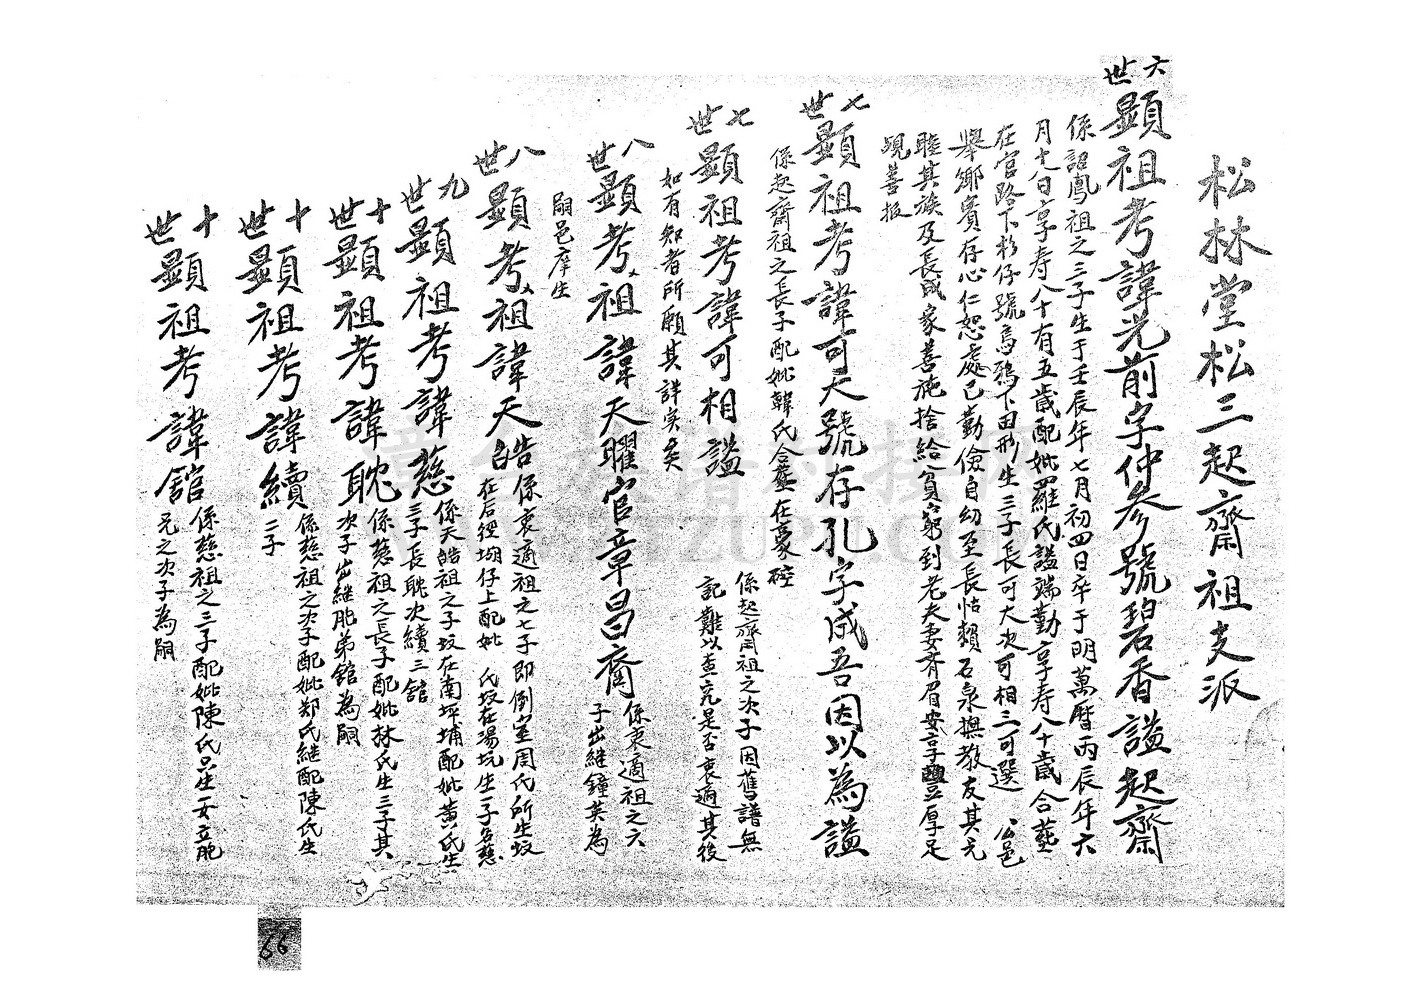 松林堂松三起齋祖支派
六世顯祖考諱光前字仲參號碧香謚起齋
係詔鳳祖之三子生于壬辰年七月初四日卒于明萬曆丙辰年六
月十八日享寿八十有五歲配妣羅氏謚端勤享寿八十歲合塟
在官路下杉仔號烏鴉下田形生三子長可大次可相三可選 公邑
舉鄉賓存心仁恕處己勤儉自幼至長怙賴石泉撫教友其兄
睦其族及長成家善施捨給貧窮到老夫妻齊眉安享豐厚足
覘善报
七世顯祖考諱可大號存孔字成吾因以為謚
係起齋祖之長子配妣韓氏合塟在
七世顯祖考諱可相謚
係起齋祖之次子因舊譜無
記難以查究是否衷適其後
如有知者所願其詳实矣
八世顯考祖諱天曜官章昌裔
係衷適祖之六
子出継鐘英為
嗣邑庠生
八世顯考祖諱天皓
係衷適祖之七子即倒室周氏所生坟
在后徑坳仔上配妣 氏坟在湯坑生一子名慈
九世顯祖考諱慈
係天皓祖之子坟在南坪埔配妣黄氏生
三子長耽次續三舘
十世顯祖考諱耽
係慈祖之長子配妣林氏生三子其
次子出継胞弟舘為嗣
十世顯祖考諱續
係慈祖之次子配妣郑氏継配陳氏生
二子
十世顯祖考諱舘
係慈祖之三子配妣陳氏只生一女立胞
兄之次子為嗣
66